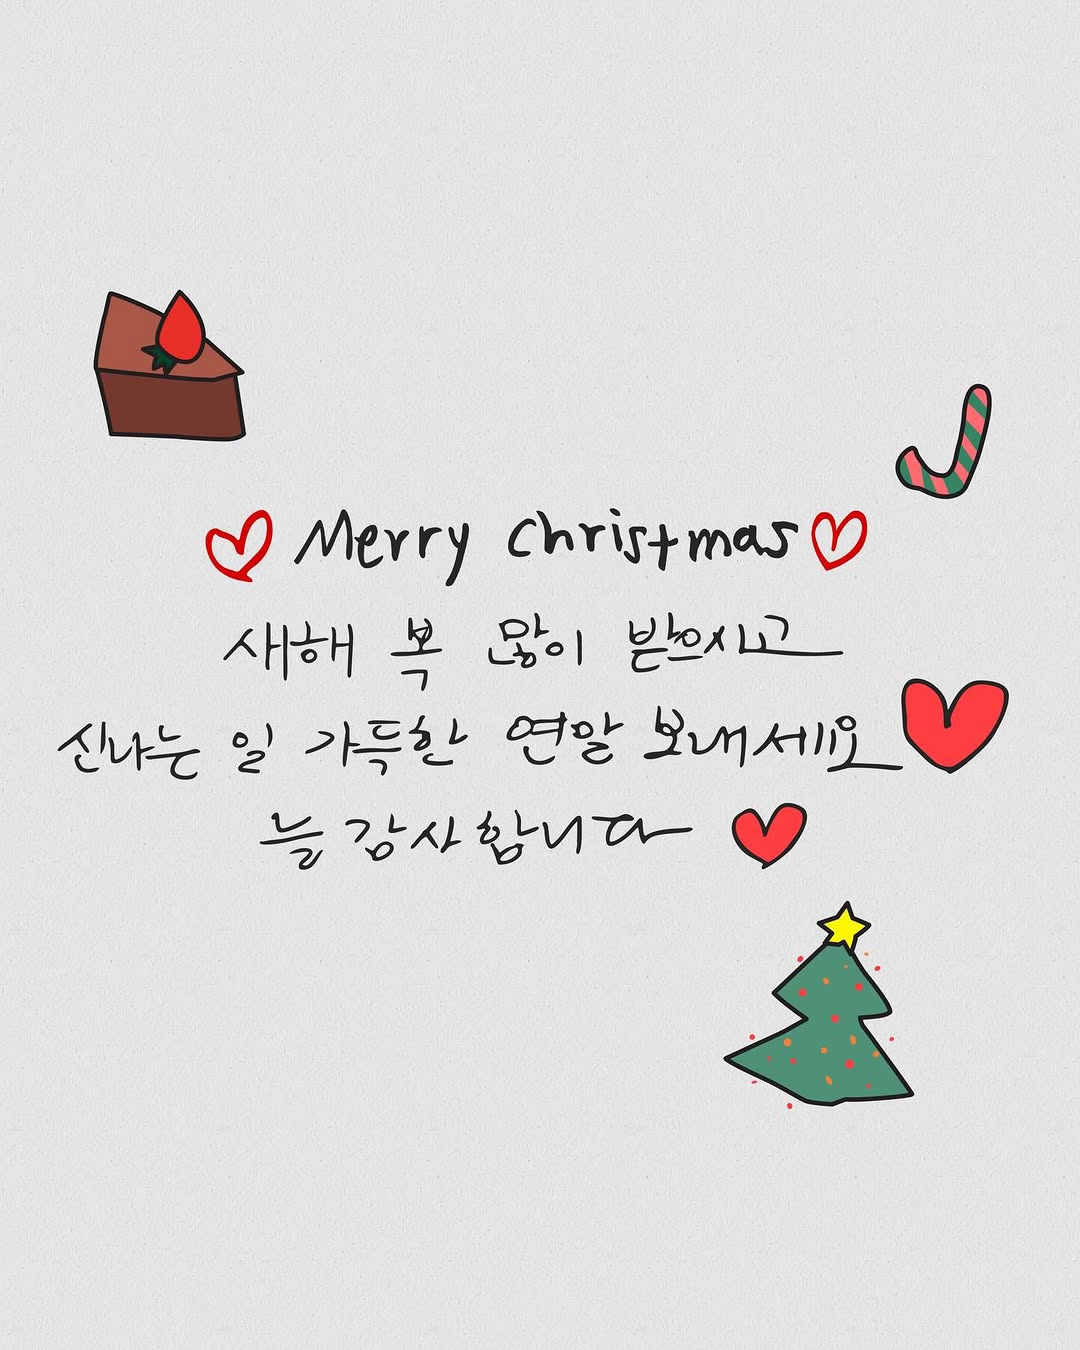 Merry christmas
새해 복 많이 받으시고
신나는 일 가득한 연말 보내세요
늘 감사합니다